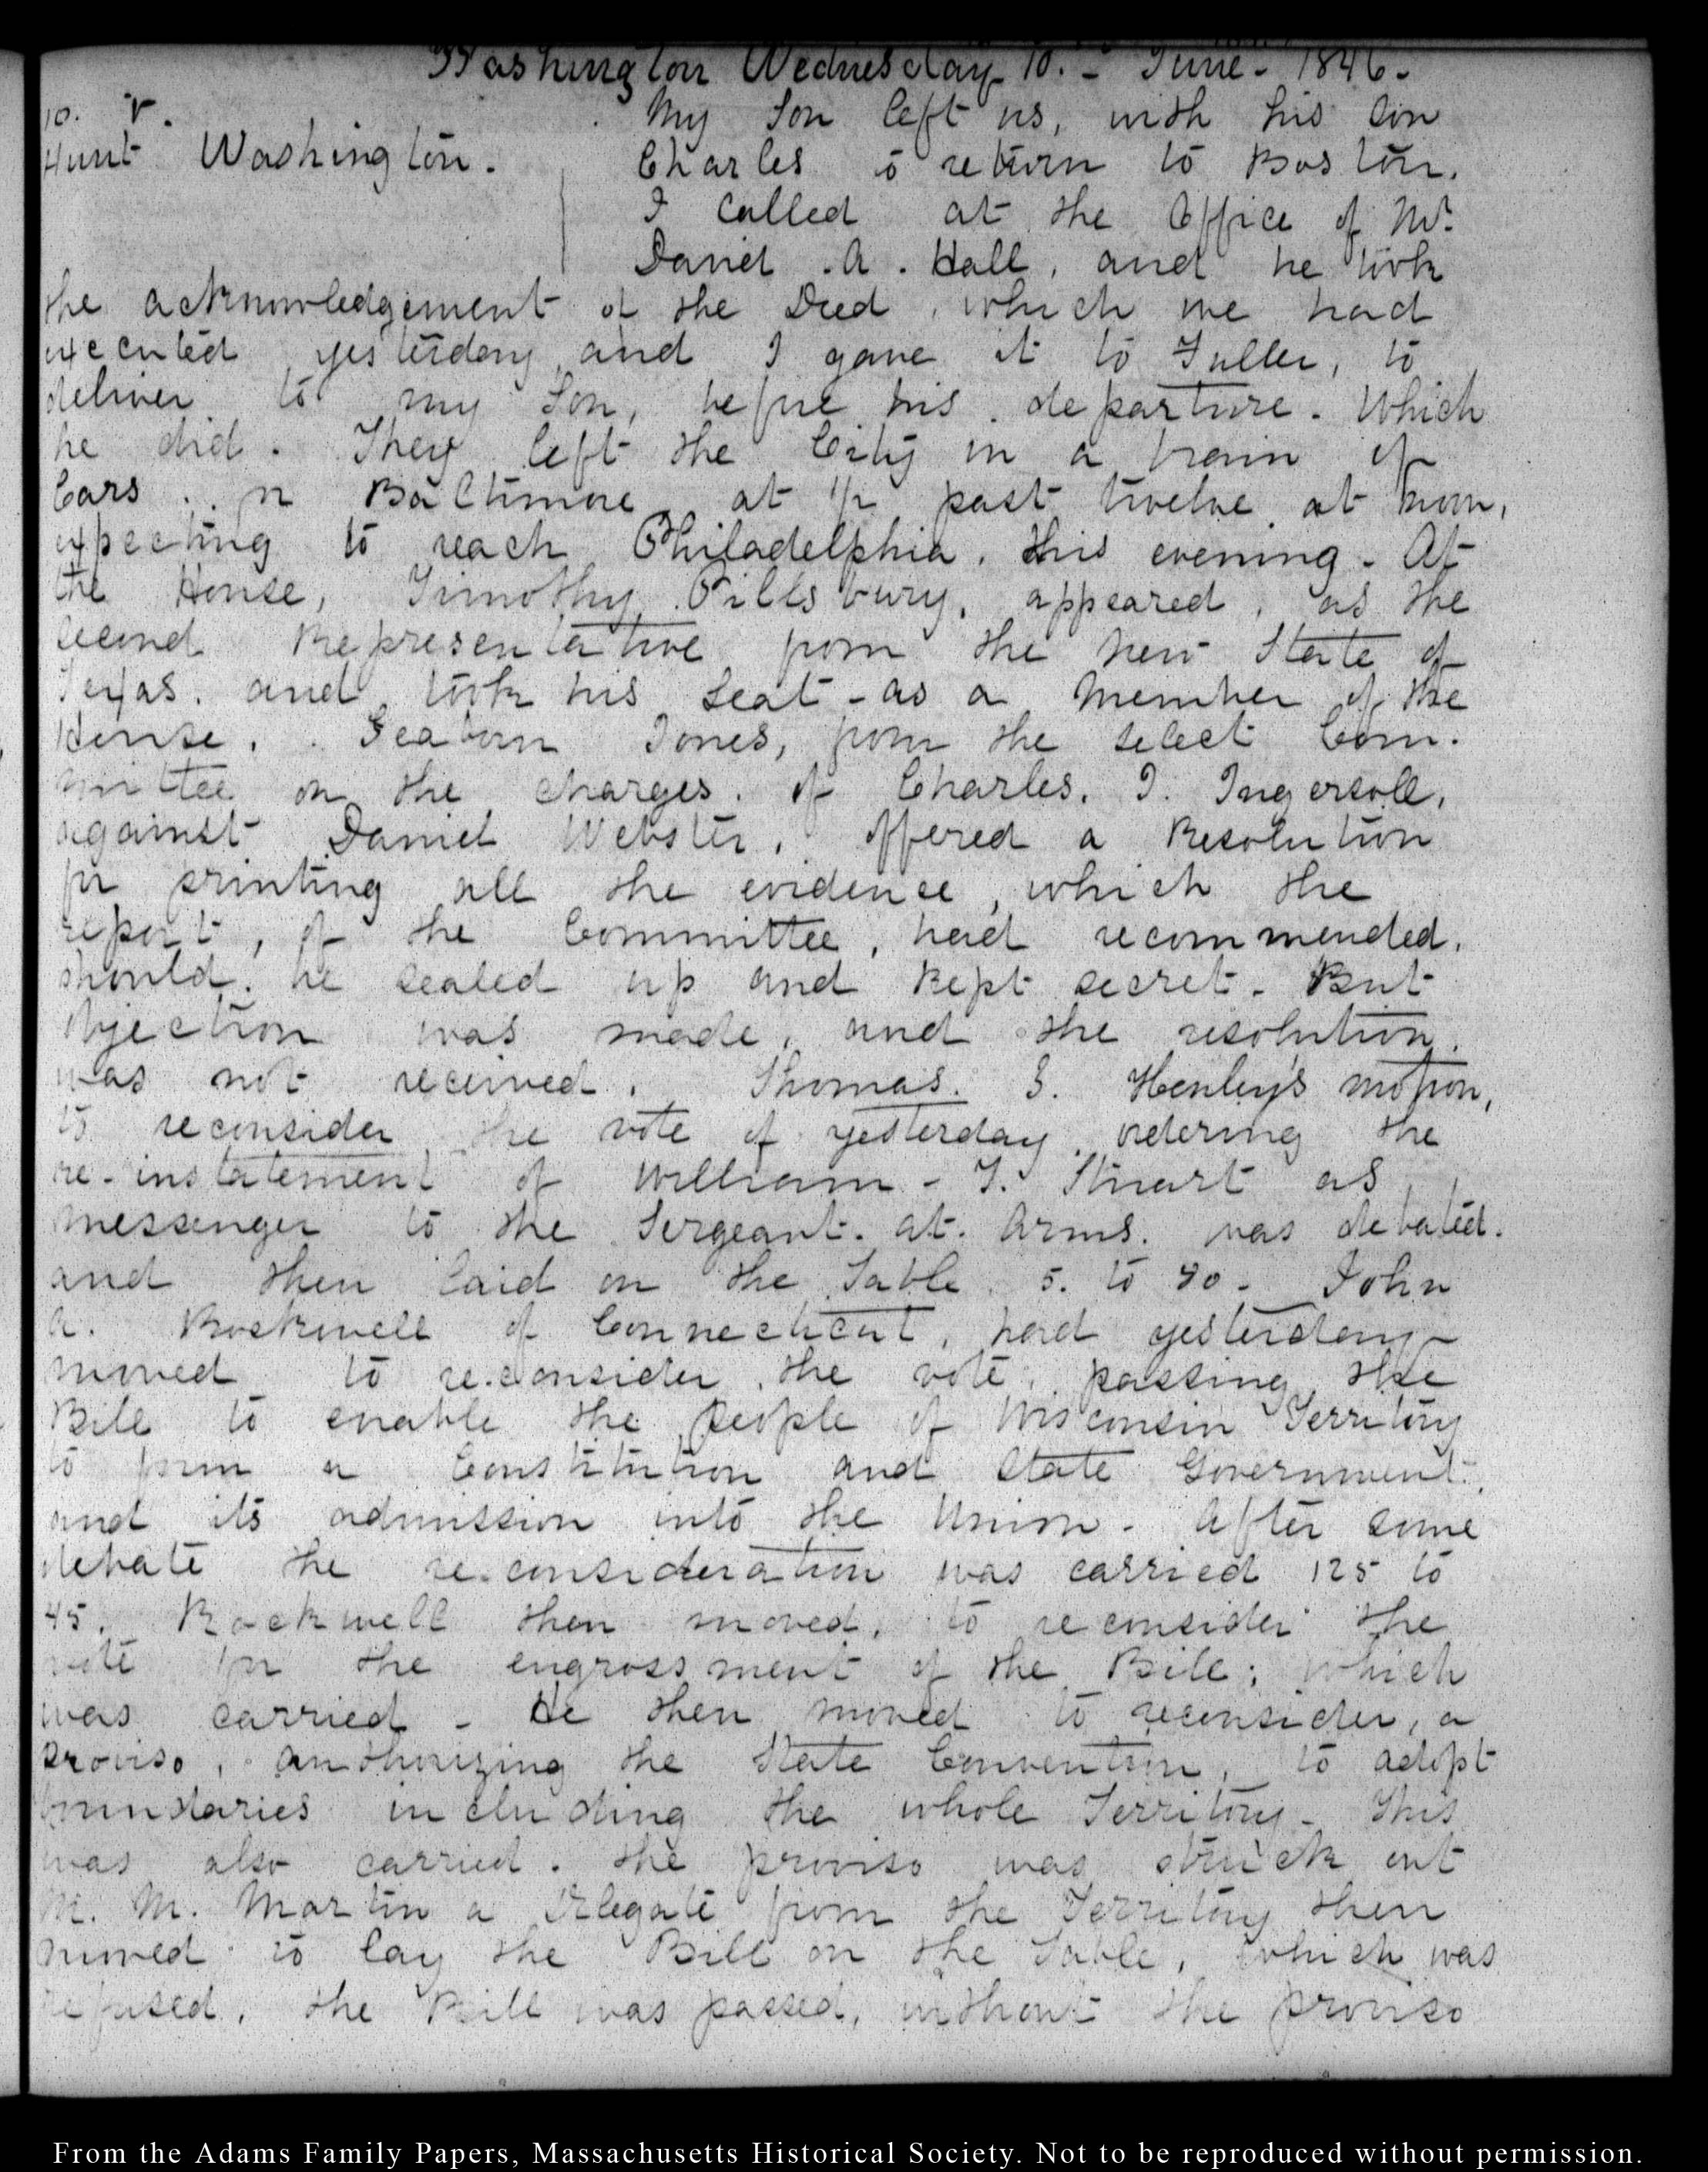 Washington Wednesday 10. - June - 1846.
10. V.
Hunt Washington.
My Son left us, with his Son
Charles to return to Boston.
I called at the Office of Mr.
Daniel . A . Hall, and he took
the acknowledgement of the Deed, which we had
executed yesterday and I gave it to Fuller, to
deliver to my Son, before his departure. Which
he did. They left the City in a train of
Cars . for Baltimore at 1/2 past twelve at noon,
expecting to reach Philadelphia, this evening. At
the House, Timothy Pillsbury, appeared, as the
second Representative from the new State of
Texas. and took his seat - as a Member of the
House. Seaborn Jones, from the select Com-
mittee on the charges. of Charles. J. Ingersoll,
against Daniel Webster, offered a Resolution
for printing all the evidence, which the
report, of the Committee, had recommended,
should. be sealed up and kept secret. But
objection was made, and the resolution.
was not received. Thomas. J. Henley's motion,
to reconsider the vote of yesterday ordering the
re-instatement of William - J. Stuart as
messenger to the Sergeant. at. Arms. was debated.
and then laid on the Table 5. to 40 - John
A. Rockwell of Connecticut, had yesterday
moved to re.consider the vote, passing the
Bill to enable the People of Wisconsin Territory
to form a Constitution and State Government,
and its admission into the Union - After some
debate the re.consideration was carried 125 to
45. Rockwell then moved, to reconsider the
vote for the engrossment of the Bill; which
was carried - He then moved to reconsider, a
proviso, authorizing the State Convention, to adopt
boundaries including the whole Territory - This
was also carried. the proviso was struck out
M. M. Martin a Delegate from the Territory then
moved to lay the Bill on the Table, which was
refused. the Bill was passed, without the proviso
From the Adams Family Papers, Massachusetts Historical Society. Not to be reproduced without permission.